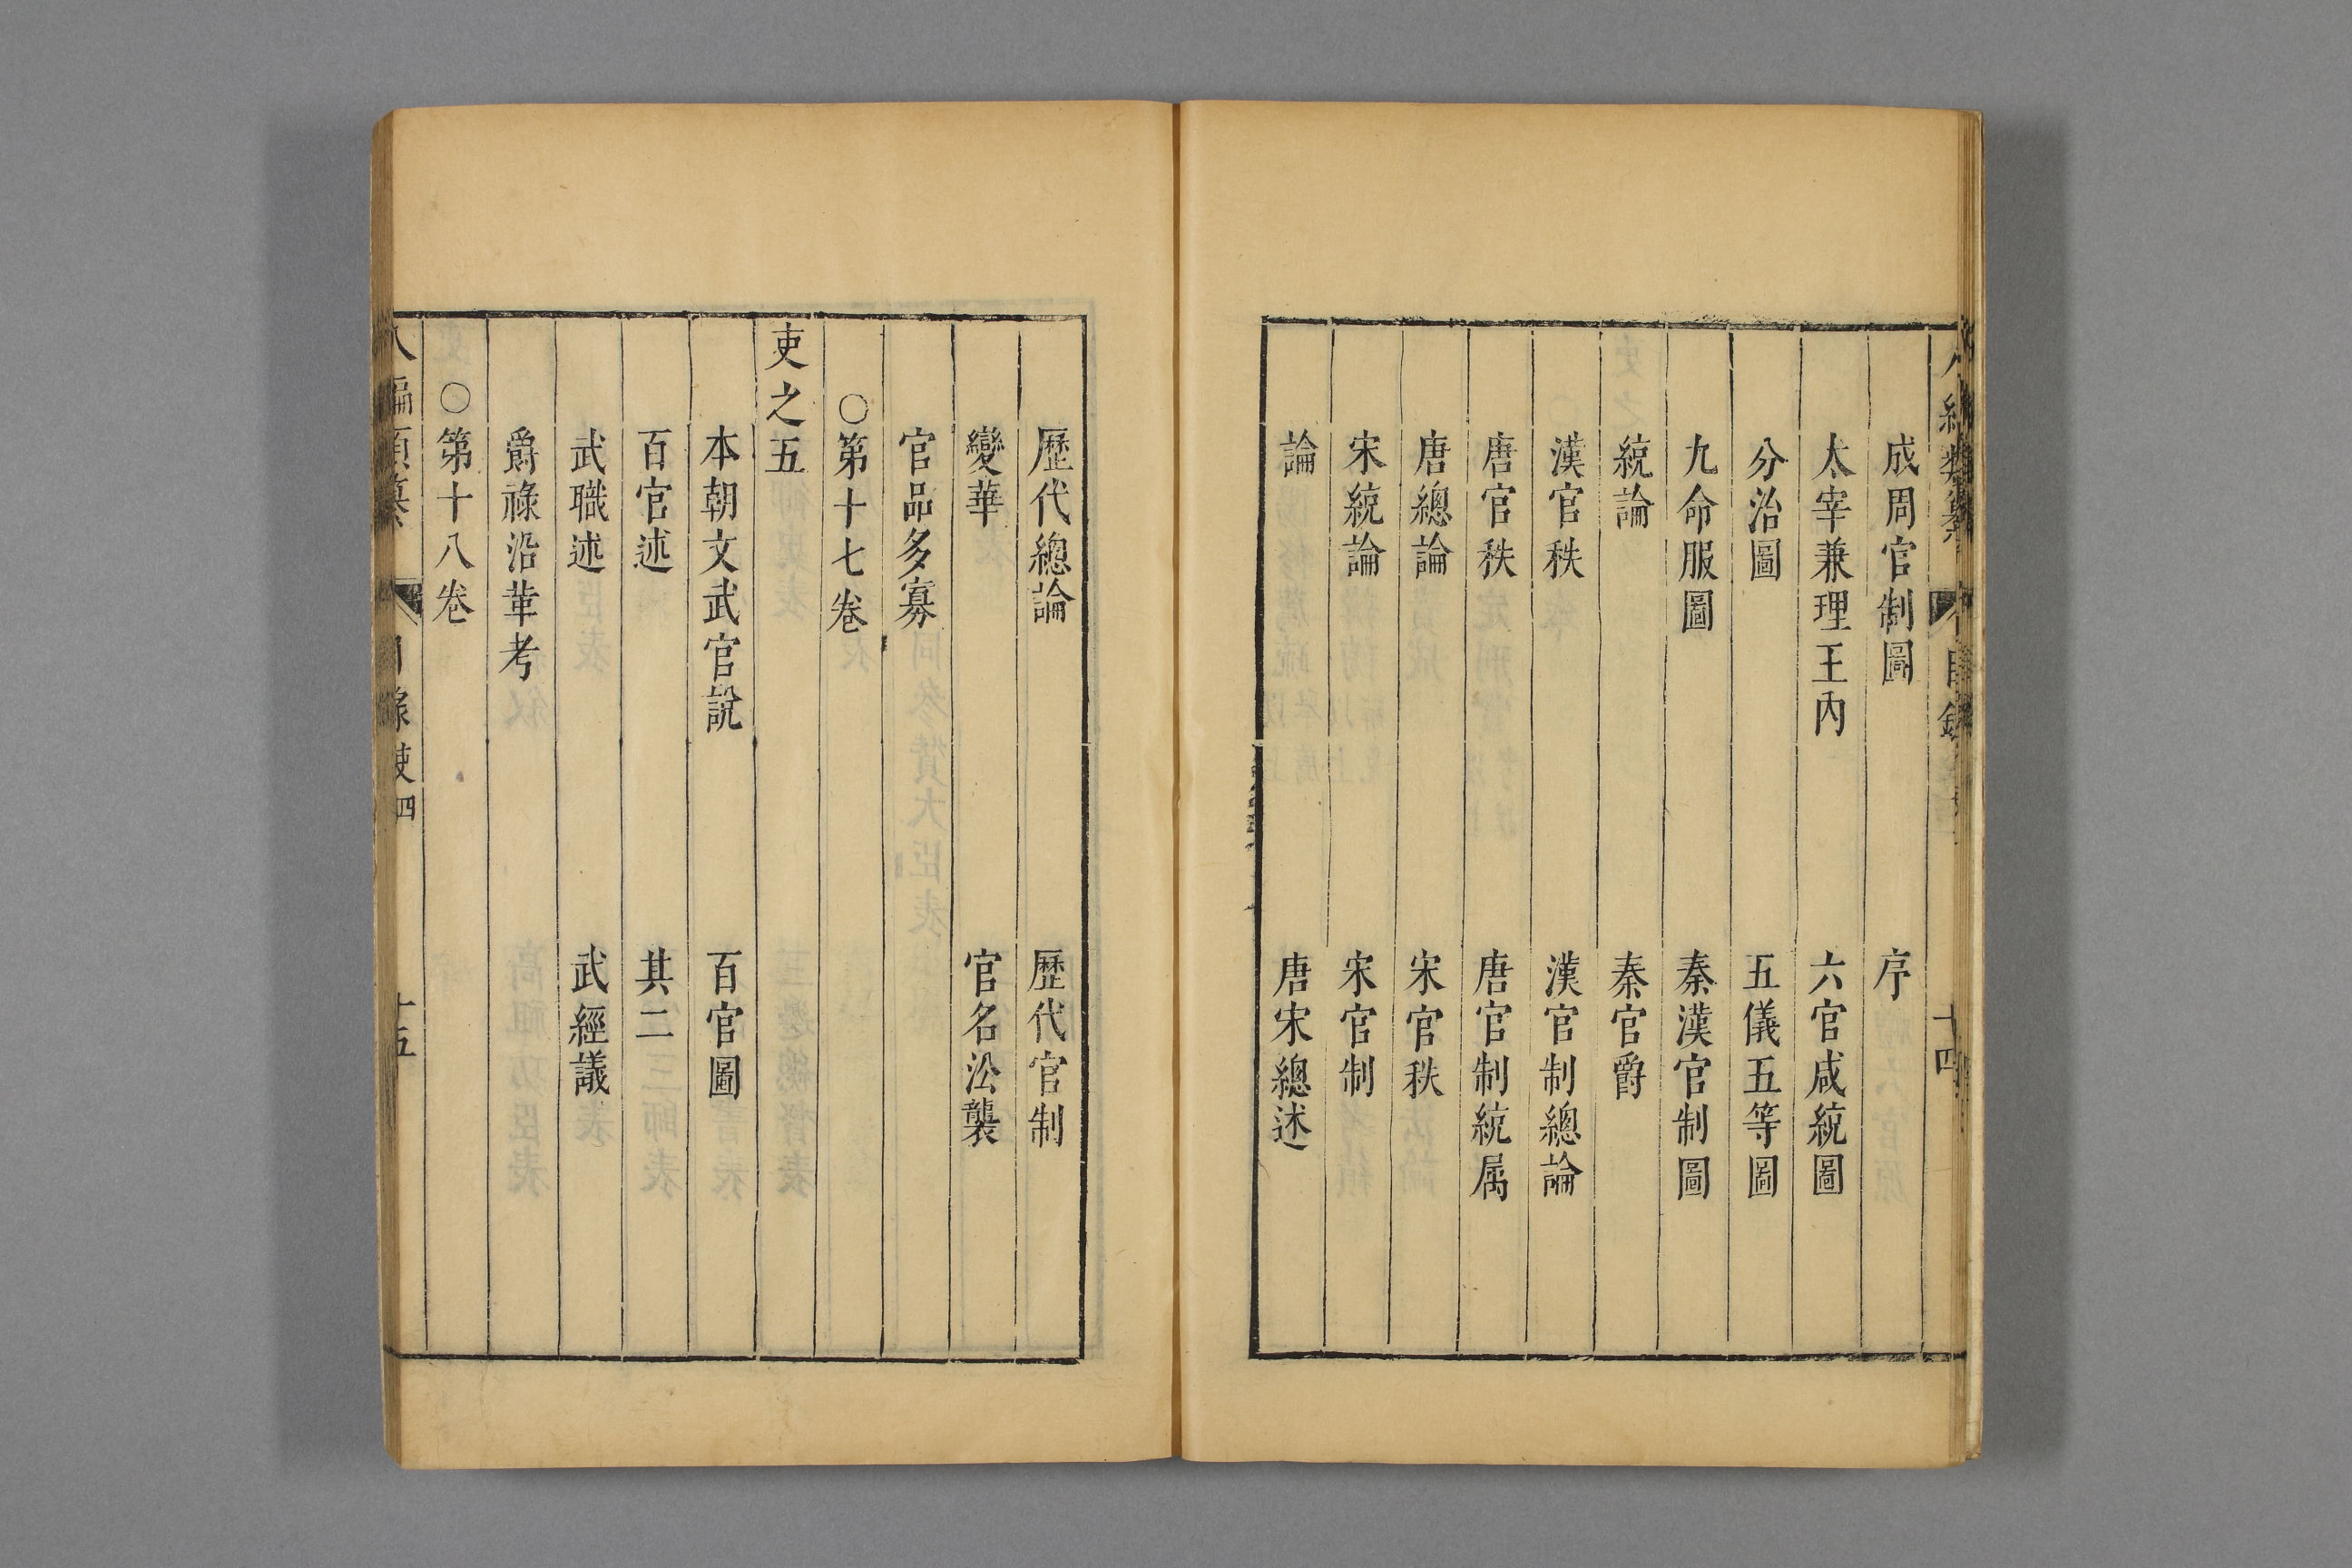 成周官制圖　序
太宰兼理王內　六官咸統圖
分治圖　五儀五等圖
九命服圖　秦漢官制圖
統論　秦官爵
漢官秩　漢官制總論
唐官秩　唐官制統属
唐總論　宋官秩
宋統論　宋官制
論　唐宋總述
歷代總論　歷代官制
變革　官名沿襲
官品多寡
○第十七卷
吏之五
本朝文武官說　百官圖
百官述　其二
武職述　武經議
爵祿沿革考
○第十八卷